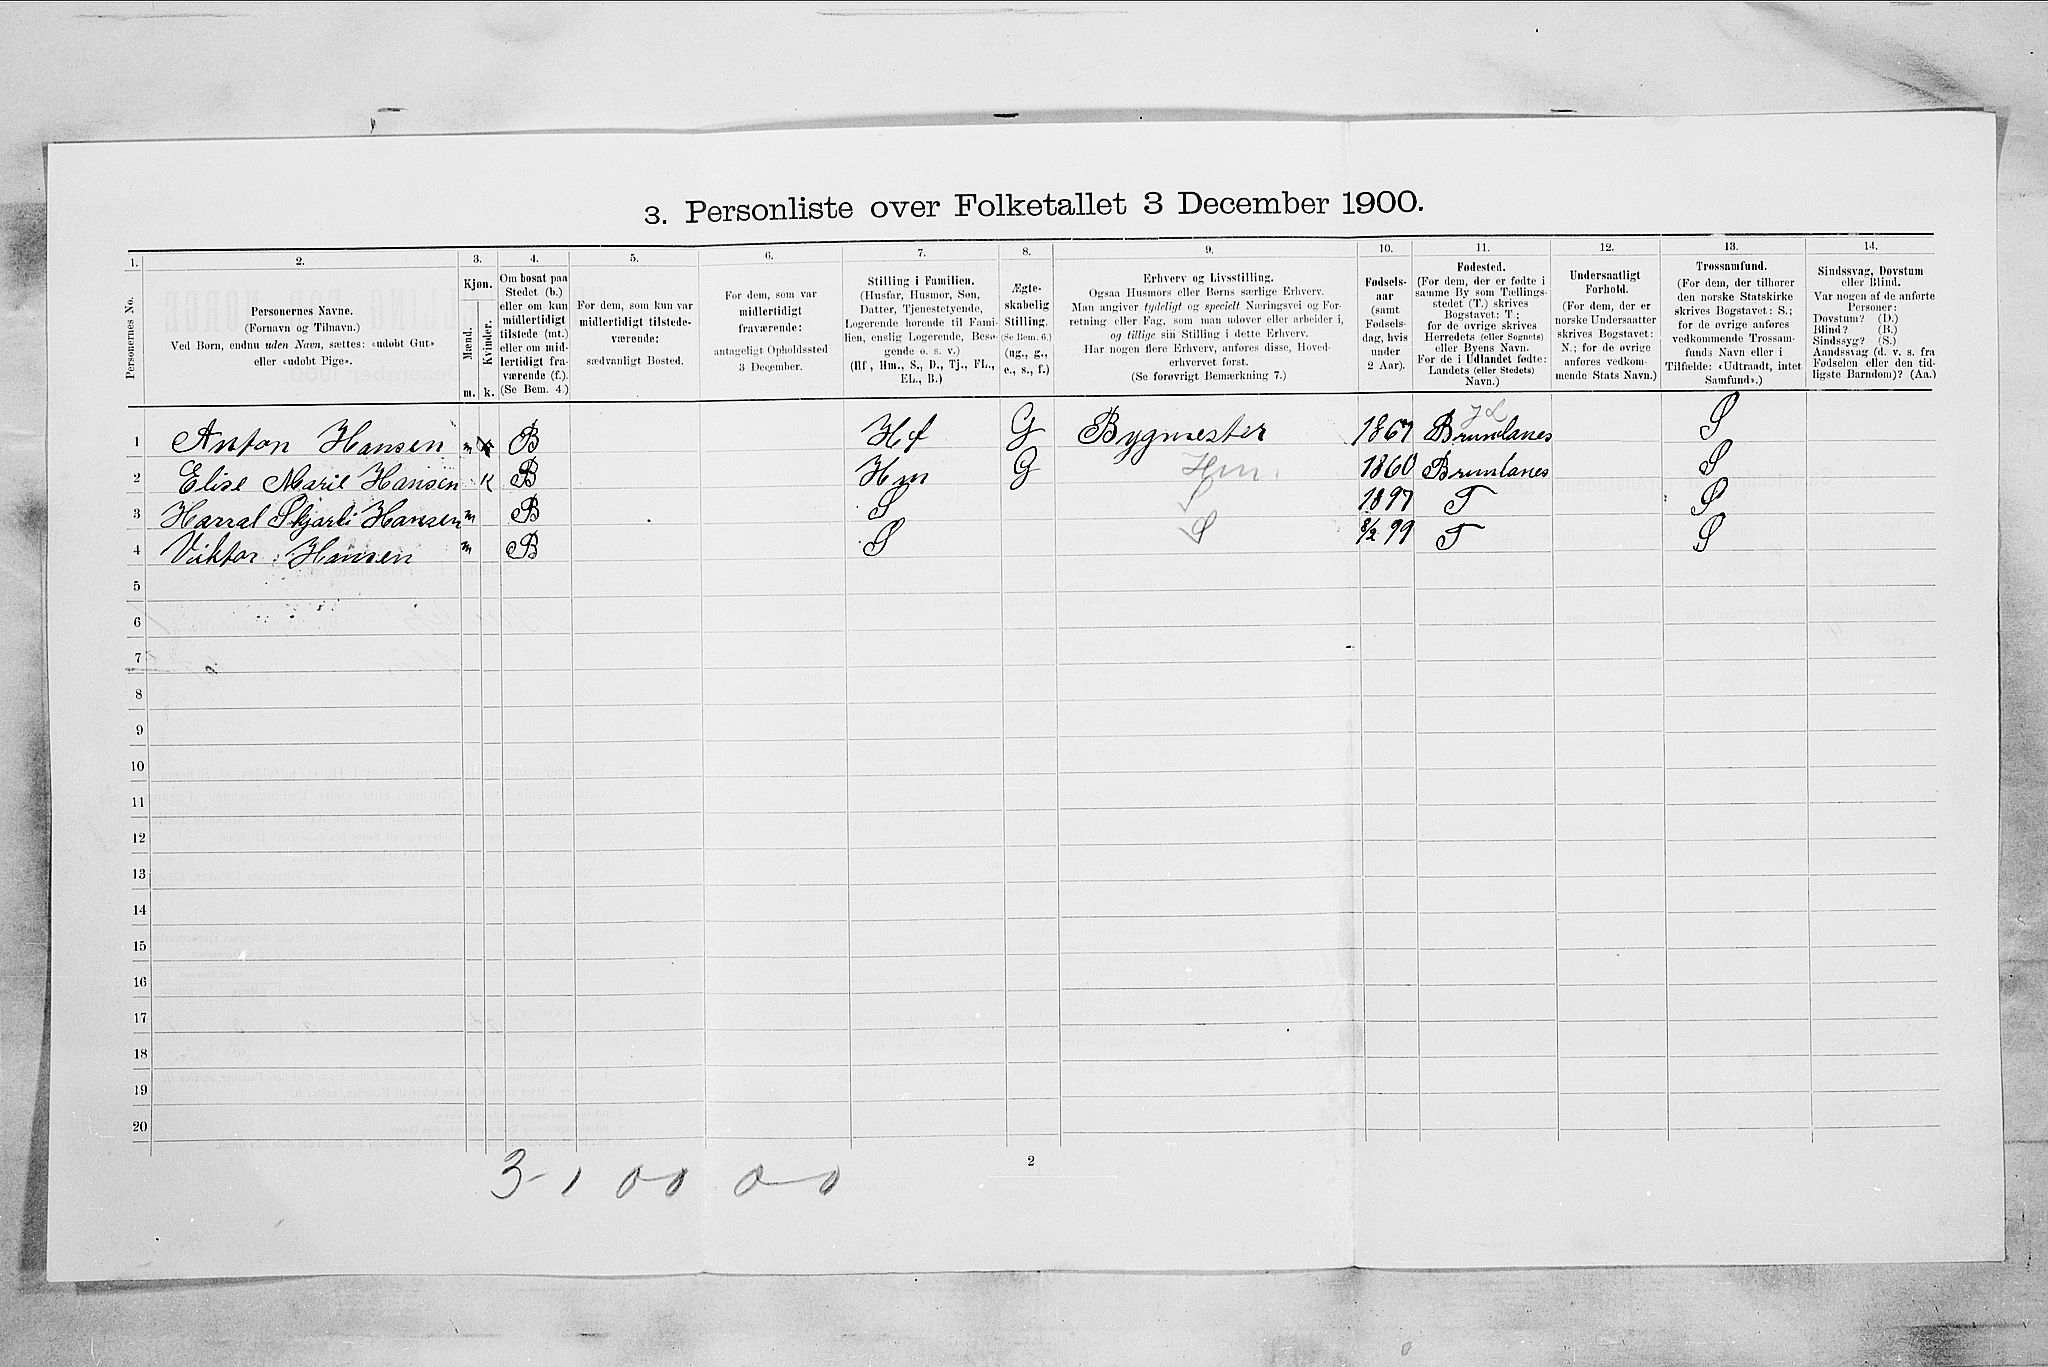 3. Personliste over Folketallet 3 December 1900.
1. 2. 3. 4. 5. 6. 7. 8. 9. 10. 11. 12. 13. 14.
Personernes No.
Personernes Navne.
(Fornavn og Tilnavn.)
Ved Børn, endnu uden Navn, sættes: «udøbt Gut»
eller «udøbt Pige».
Kjøn.
Mænd. Kvinder.
m. k.
Om bosat paa
Stedet (b.)
eller om kun
midlertidigt
tilstede (mt.)
eller om mid-
lertidigt fra-
værende (f.).
(Se Bem. 4.)
For dem, som kun var
midlertidigt tilstede-
værende:
sædvanligt Bosted.
For dem, som var
midlertidigt
fraværende:
antageligt Opholdssted
3 December.
Stilling i Familien.
(Husfar, Husmor, Søn,
Datter, Tjenestetyende,
Logerende hørende til Fami-
lien, enslig Logerende, Besø-
gende o. s. v.)
(Hf, Hm., S., D., Tj., FL.,
EL., B.)
Ægte-
skabelig
Stilling.
(Se Bem. 6.)
(ug., g.,
e., s., f.)
Erhverv og Livsstilling.
Ogsaa Husmors eller Børns særlige Erhverv.
Man angiver tydeligt og specielt Næringsvei og For-
retning eller Fag, som man udøver eller arbeider i,
og tillige sin Stilling i dette Erhverv.
Har nogen flere Erhverv, anføres disse, Hoved-
erhvervet først.
(Se forøvrigt Bemærkning 7.)
Fødsels-
aar
(samt
Fødsels-
dag, hvis
under
2 Aar).
Fødested.
(For dem, der er fødte i
samme By som Tællings-
stedet (T.) skrives
Bogstavet: T;
for de øvrige skrives
Herredets (eller Sognets)
eller Byens Navn.
For de i Udlandet fødte:
Landets (eller Stedets)
Navn.)
Undersaatligt
Forhold.
(For dem, der er
norske Undersaatter
skrives Bogstavet:
N.; for de øvrige
anføres vedkom-
mende Stats Navn.)
Trossamfund.
(For dem, der tilhører
den norske Statskirke
skrives Bogstavet: S.;
for de øvrige anføres
vedkommende Trossam-
funds Navn eller i
Tilfælde: «Udtraadt, intet
Samfund».)
Sindssvag, Døvstum
eller Blind.
Var nogen af de anførte
Personer:
Døvstum? (D.)
Blind? (B.)
Sindssyg? (S.)
Aandssvag (d. v. s. fra
Fødselen eller den tid-
ligste Barndom)? (Aa.)
1 Anton Hansen m B Hf G Bygmester 1867 Brunlanes S
2 Elise Marie Hansen K B Hm G Hm. 1860 Brunlanes S
3 Harral Skjarli Hansen m B S S 1897 T S
4 Viktor Hansen m B S S 8/2 99 T S
5
6
7
8
9
10
11
12
13
14
15
16
17
18
19
20
3-1 00 0-0
2